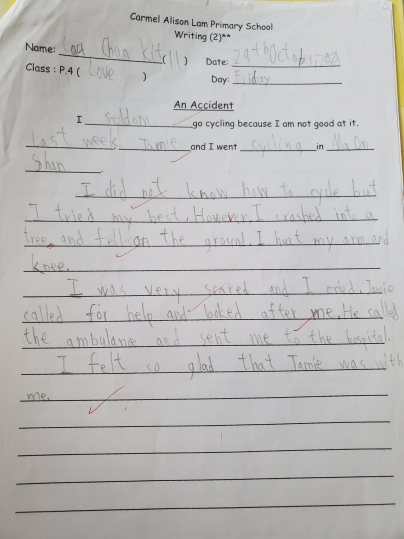 Carmel Alison Lam Primary School
Writing (2)**
Name: Lau Chan Kit (11) Date: 29th October 2021
Class : P.4 ( Love ) Day: Friday
An Accident
I seldom go cycling because I am not good at it.
Last week, Jamie and I went cycling in Ma On
Shan.
I did not know how to cycle but
I tried my best. However, I crashed into a
tree and fell on the ground. I hurt my arm and
knee.
I was very scared and I cried. Jamie
called for help and looked after me. He called
the ambulance and sent me to the hospital.
I felt so glad that Jamie was with
me.